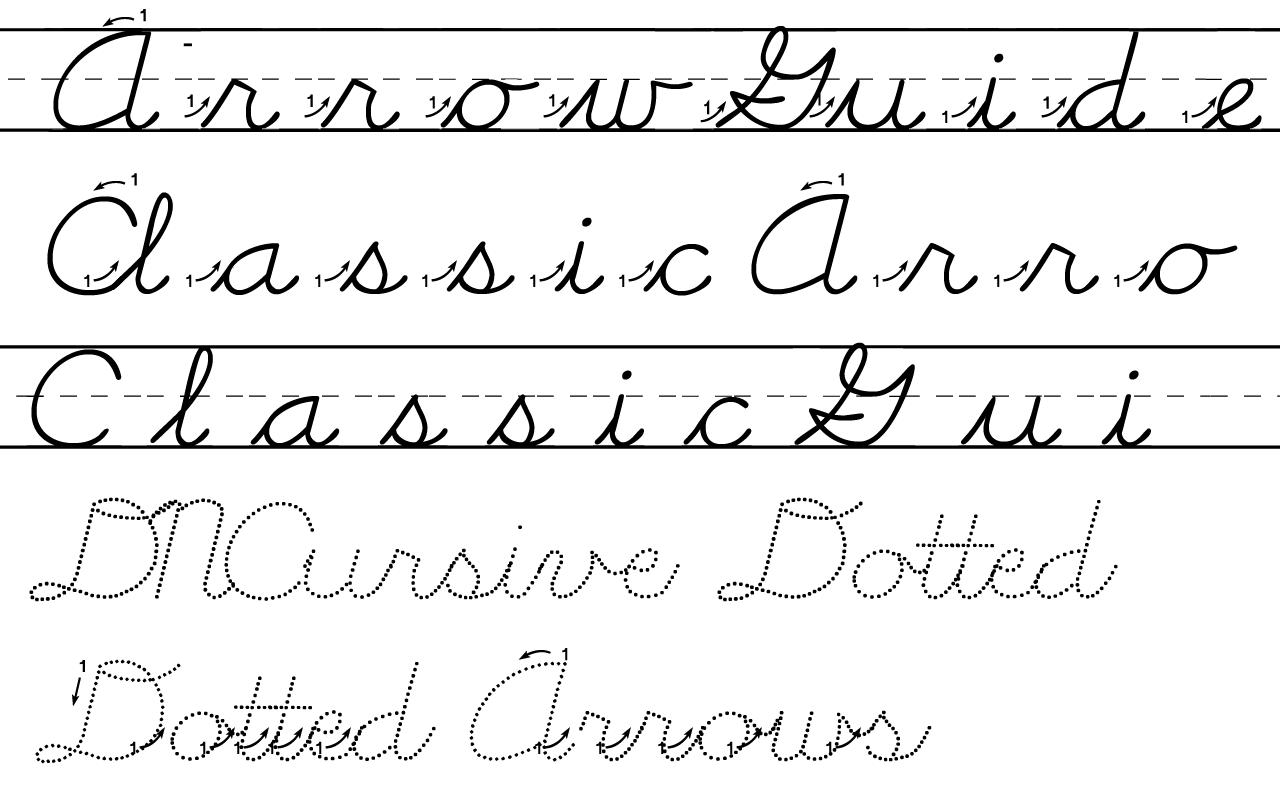 Arrow Guide
Classic Arro
Classic Gui
DNCursive Dotted
Dotted Arrows